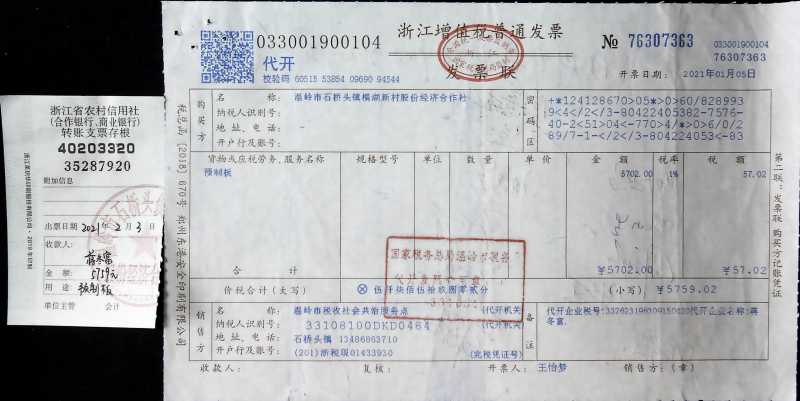 浙江省农村信用社
(合作银行、商业银行)
转账支票存根
40203320
35287920
附加信息
出票日期 2021年2月3日
收款人:
蒋冬富
金 额: 5759元
用 途: 预制板
单位主管 会计
浙江增值税普通发票
033001900104
代开
校验码 60515 53854 09690 94544
发票联
№ 76307363
033001900104
76307363
开票日期: 2021年01月05日
购买方
名 称: 温岭市石桥头镇横湖新村股份经济合作社
纳税人识别号: -
地 址、电 话: -
开户行及账号: -
密码区
+*124128670>05*>0>60/828993
9<4</2</3-80422405382-7576-
40-2<51>04<-770<4/*>0>6/0/2
89/7-1-</2</-3-804224053<-83
货物或应税劳务、服务名称 规格型号 单位 数量 单价 金额 税率 税额
预制板 5702.00 1% 57.02
合 计 ¥5702.00 ¥57.02
价税合计(大写) ⊗ 伍仟柒佰伍拾玖圆零贰分 (小写) ¥5759.02
销售方
名 称: 温岭市税收社会共治服务点 (代开机关)
纳税人识别号: 33108100DKD0464 (代开机关)
地 址、电 话: 石桥头镇 13486863710
开户行及账号: (201)浙税版01433930 (完税凭证号)
备注
收款人: 复核: 开票人: 王怡梦 销售方:(章)
税总函〔2018〕670号
第二联:发票联 购买方记账凭证